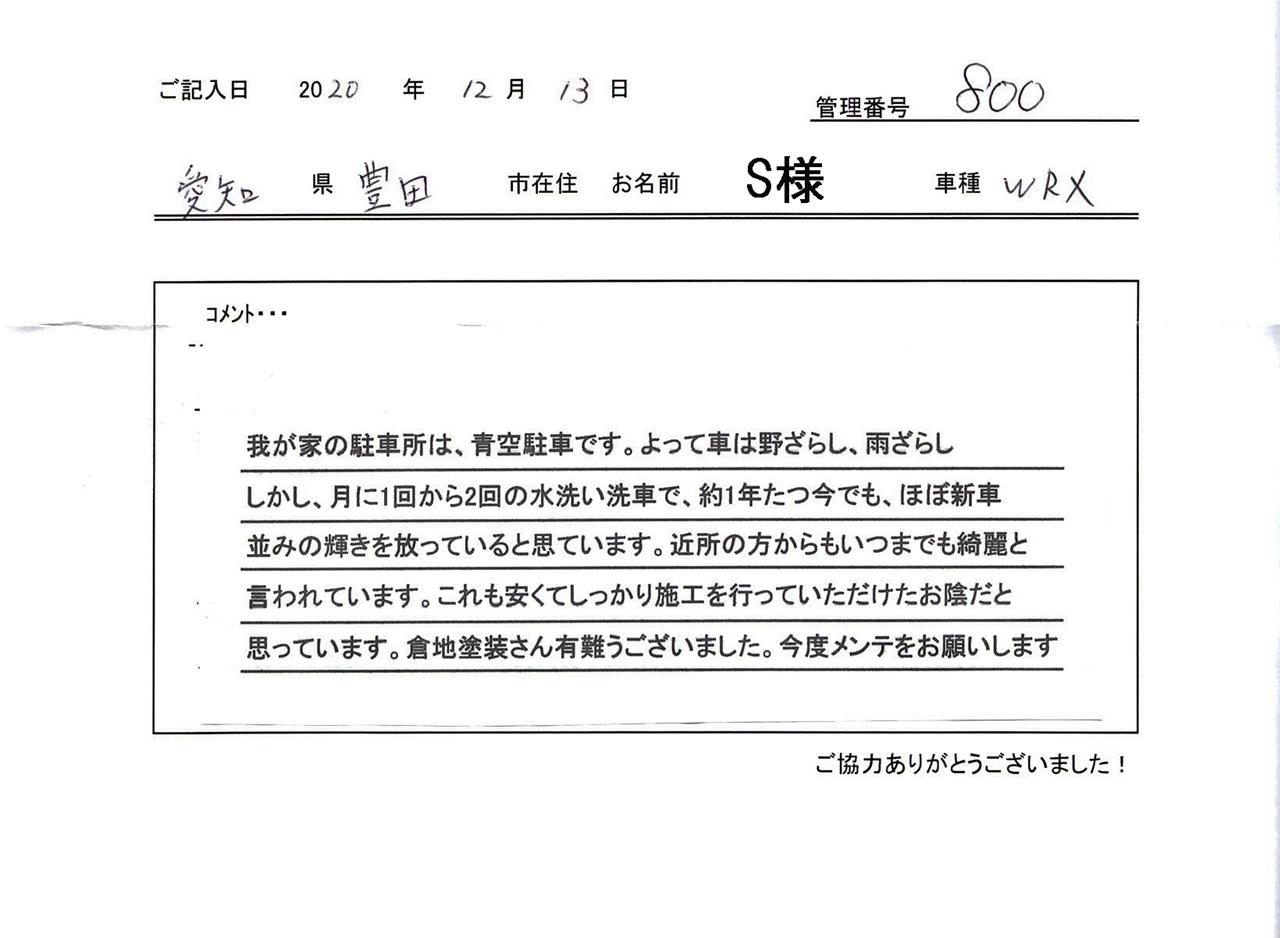 ご記入日 2020 年 12 月 13 日
管理番号 800
愛知 県 豊田 市在住 お名前 S様 車種 WRX
コメント・・・
我が家の駐車所は、青空駐車です。よって車は野ざらし、雨ざらし
しかし、月に1回から2回の水洗い洗車で、約1年たつ今でも、ほぼ新車
並みの輝きを放っていると思ています。近所の方からもいつまでも綺麗と
言われています。これも安くてしっかり施工を行っていただけたお陰だと
思っています。倉地塗装さん有難うございました。今度メンテをお願いします
ご協力ありがとうございました！